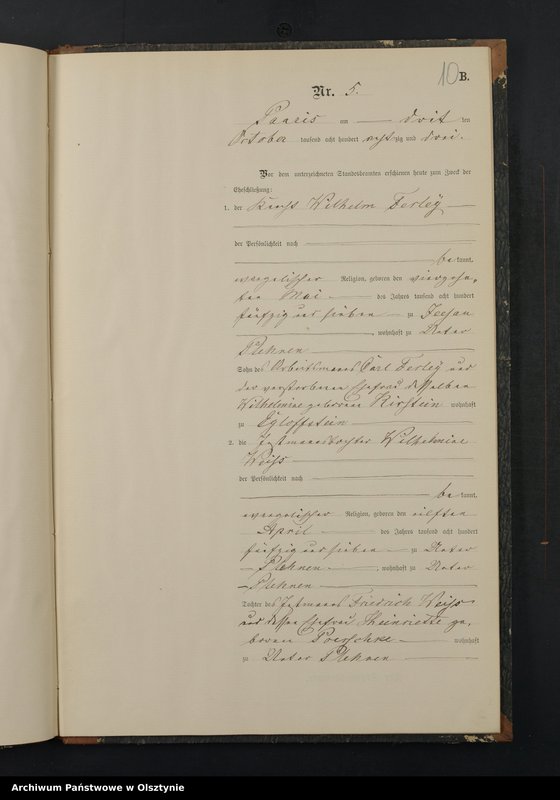 10 B.
Nr. 5.
Paaris am dritten
October tausend acht hundert achtzig und drei.
Vor dem unterzeichneten Standesbeamten erschienen heute zum Zweck der
Eheschließung:
1. der Knecht Wilhelm Ferley
der Persönlichkeit nach
bekannt,
evangelischer Religion, geboren den vierzehn,
ten Mai des Jahres tausend acht hundert
fünfzig und sieben zu
, wohnhaft zu Unter
Plehnen
Sohn des Arbeitsmann Carl Ferley und
der verstorbenen Ehefrau desselben
Wilhelmine geborenen Kirstein wohnhaft
zu Egloffstein
2. die Instmannstochter Wilhelmine
Weiss
der Persönlichkeit nach
bekannt,
evangelischer Religion, geboren den elften
April des Jahres tausend acht hundert
fünfzig und sieben zu Unter
Plehnen, wohnhaft zu Unter
Plehnen
Tochter des Instmann Friedrich Weiss
und dessen Ehefrau Heinriette ge,
borenen Poerschke wohnhaft
zu Unter Plehnen
Archiwum Państwowe w Olsztynie